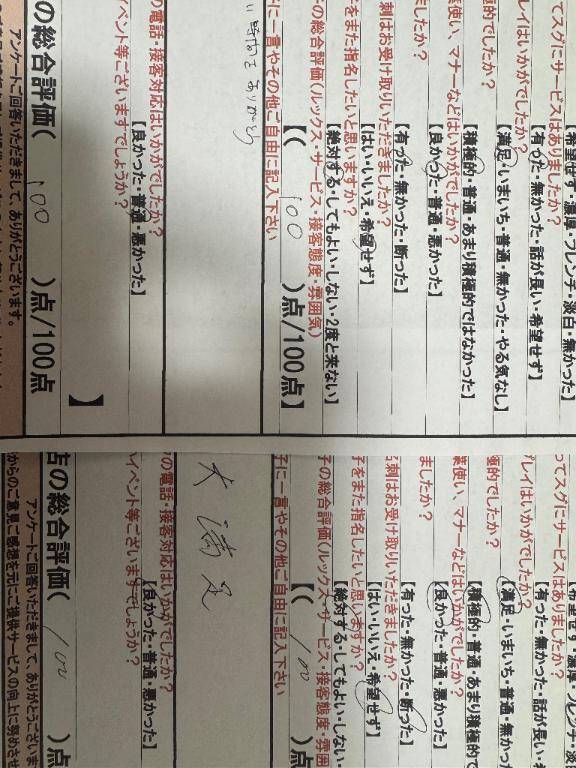 希望せず・濃厚・フレンチ・淡白・無かった】
てスグにサービスはありましたか?
【有った・無かった・話が長い・希望せず】
レイはいかがでしたか?
【満足・いまいち・普通・無かった・やる気なし】
極的でしたか?
【積極的・普通・あまり積極的ではなかった】
葉使い、マナーなどはいかがでしたか?
【良かった・普通・悪かった】
ましたか?
【有った・無かった・断った】
刺はお受け取りいただきましたか?
【はい・いいえ・希望せず】
をまた指名したいと思いますか?
【絶対する・してもよい・しない・2度と来ない】
の総合評価(ルックス・サービス・接客態度・雰囲気)
【( 100 )点/100点】
に一言やその他ご自由に記入下さい
い時間をありがとう
の電話・接客対応はいかがでしたか?
【良かった・普通・悪かった】
イベント等ございますでしょうか?
】
の総合評価( 100 )点/100点
アンケートご回答いただきまして、ありがとうございます。
希望せず・濃厚・フレンチ・淡
ってスグにサービスはありましたか?
【有った・無かった・話が長い・
プレイはいかがでしたか?
【満足・いまいち・普通・無かっ
極的でしたか?
【積極的・普通・あまり積極的で
葉使い、マナーなどはいかがでしたか?
【良かった・普通・悪かった】
ましたか?
【有った・無かった・断った】
名刺はお受け取りいただきましたか?
【はい・いいえ・希望せず】
子をまた指名したいと思いますか?
【絶対する・してもよい・しない・
子の総合評価(ルックス・サービス・接客態度・雰囲
【( 100 )点
子に一言やその他ご自由に記入下さい
大満足
の電話・接客対応はいかがでしたか?
【良かった・普通・悪かった】
イベント等ございますでしょうか?
店の総合評価( 100 )点
アンケートご回答いただきまして、ありがとうございま
からのご意見ご感想を元にご提供サービスの向上に努めさせ